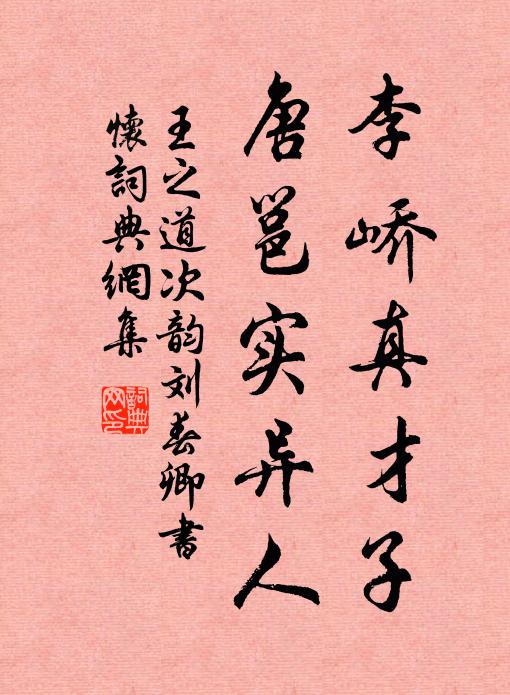 李峤真才子
唐邕实异人
王之道次韵刘春卿书
懷詞典網集
詞典
网印